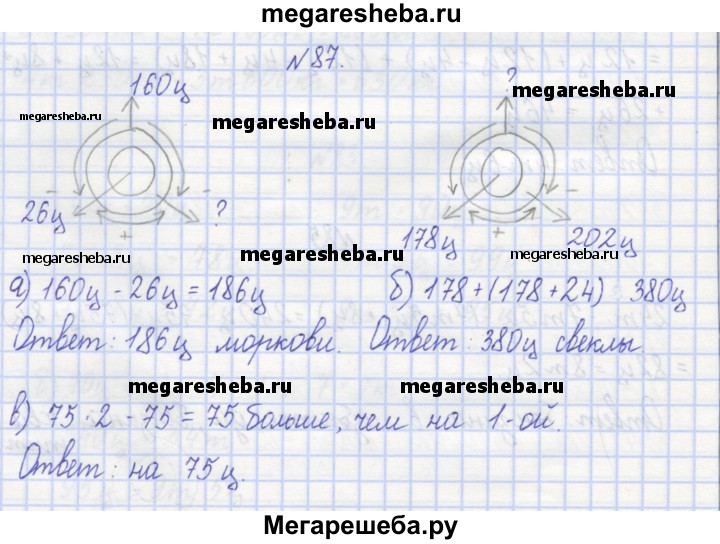 megaresheba.ru
N87.
160ц ?
megaresheba.ru megaresheba.ru megaresheba.ru
- - - -
26ц ? 178ц 202ц
+ +
megaresheba.ru megaresheba.ru megaresheba.ru
а) 160ц - 26ц = 186ц б) 178+(178+24) 380ц
Ответ: 186ц моркови. Ответ: 380ц свеклы
megaresheba.ru megaresheba.ru
в) 75·2 - 75 = 75 больше, чем на 1-ой.
Ответ: на 75ц.
Мегарешеба.ру